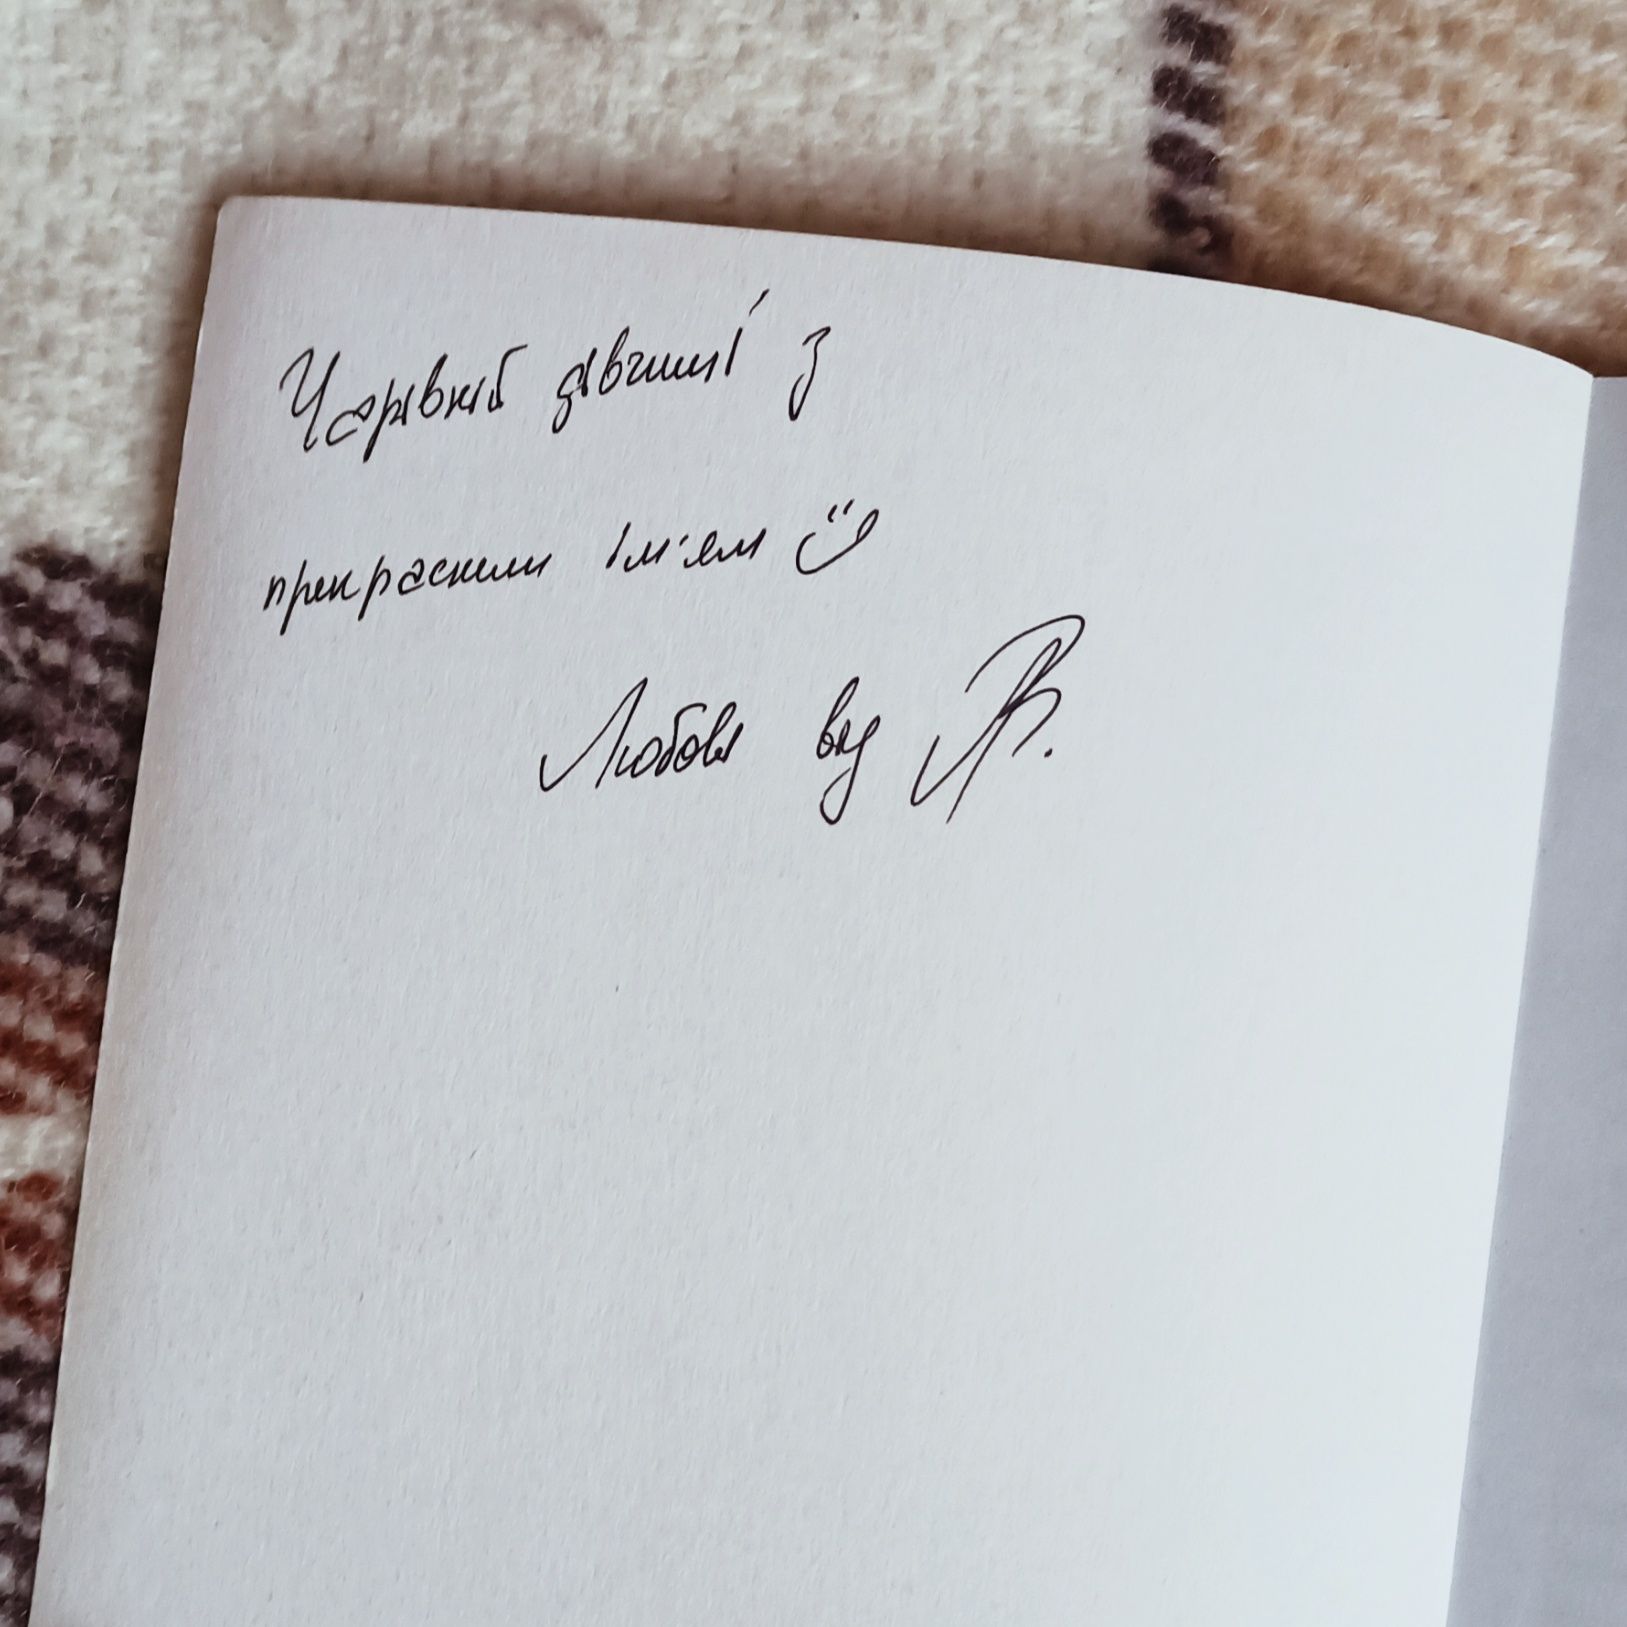 Чарівній дівчині з
прекрасним ім'ям
Любові від ЛВ.